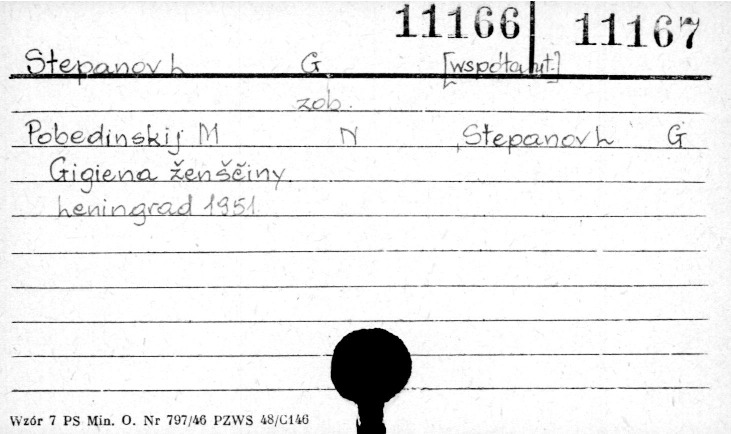 11166 11167
Stepanov L G [współaut.]
zob.
Pobedinskij M N , Stepanov L G
Gigiena ženščiny.
Leningrad 1951
Wzór 7 PS Min. O. Nr 797/46 PZWS 48/C146